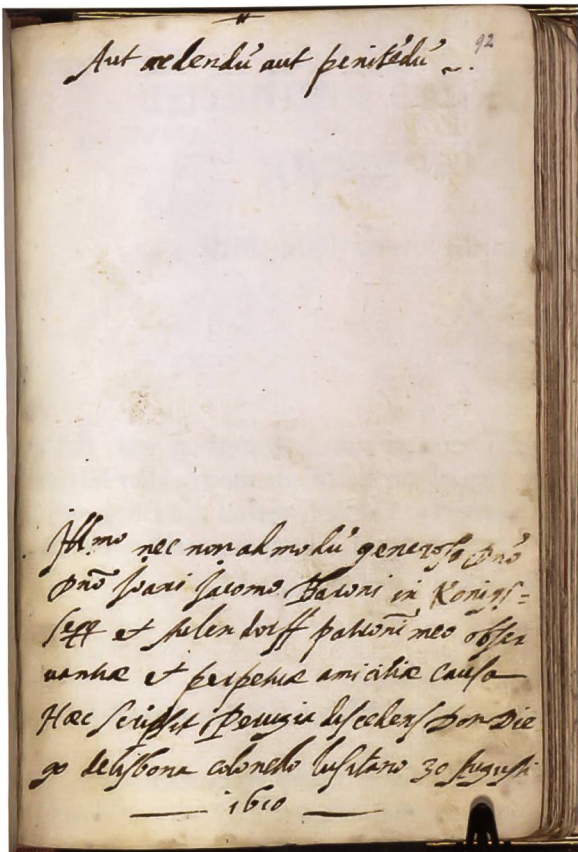 92
Aut credendū aut penitēdū
Ill.mo nec non admodū generoso Dnō
Dnō Joani Jacomo Baroni in Konigs=
segg et Aulendorff patroni meo obser
vantiæ et perpetuæ amicitiæ causa
Hæc scripsit Perugia discedens Don Die
go de lisbona colonello lusitano 30 Augusti
1610